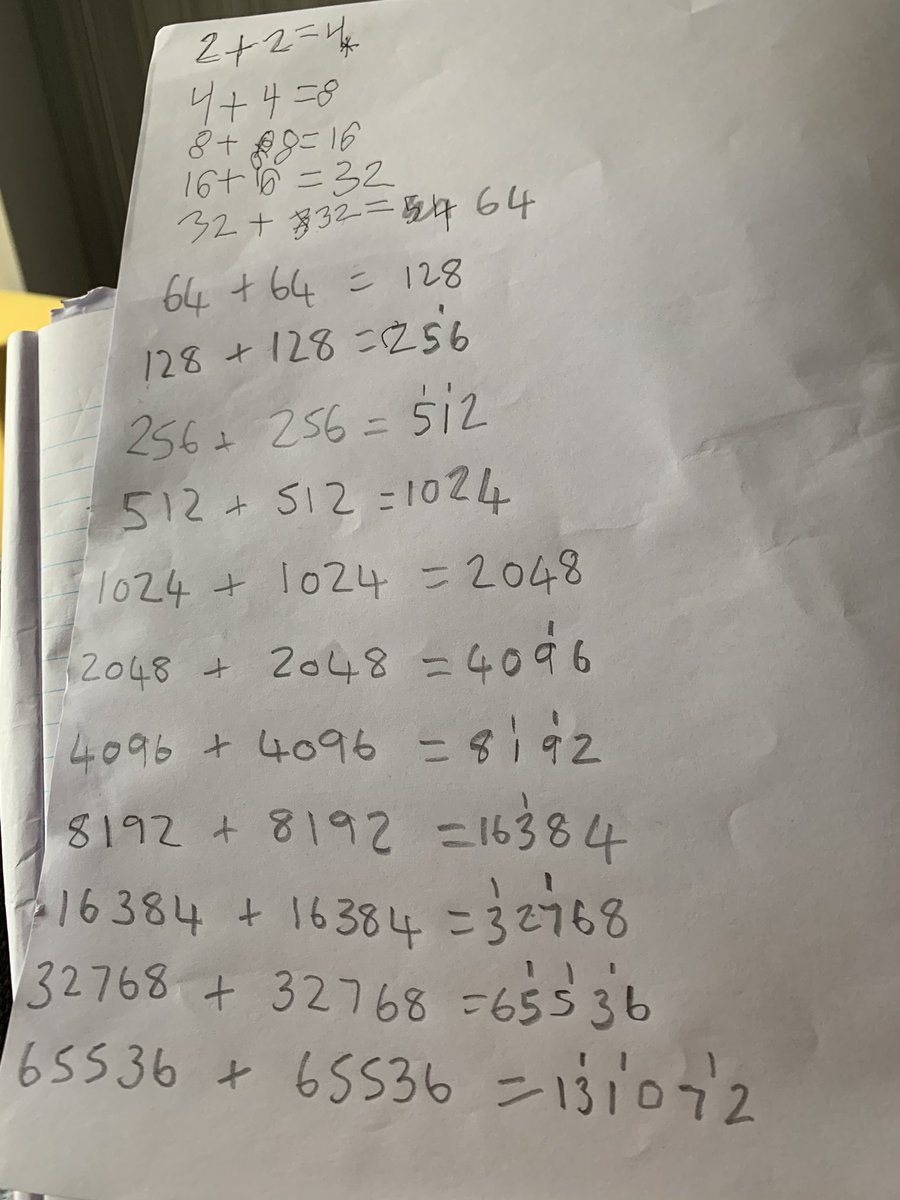 2+2=4*
4+4=8
8+8=16
16+16=32
32+32=64
64+64=128
128+128=256
256+256=512
512+512=1024
1024+1024=2048
2048+2048=4096
4096+4096=8192
8192+8192=16384
16384+16384=32768
32768+32768=65536
65536+65536=131072